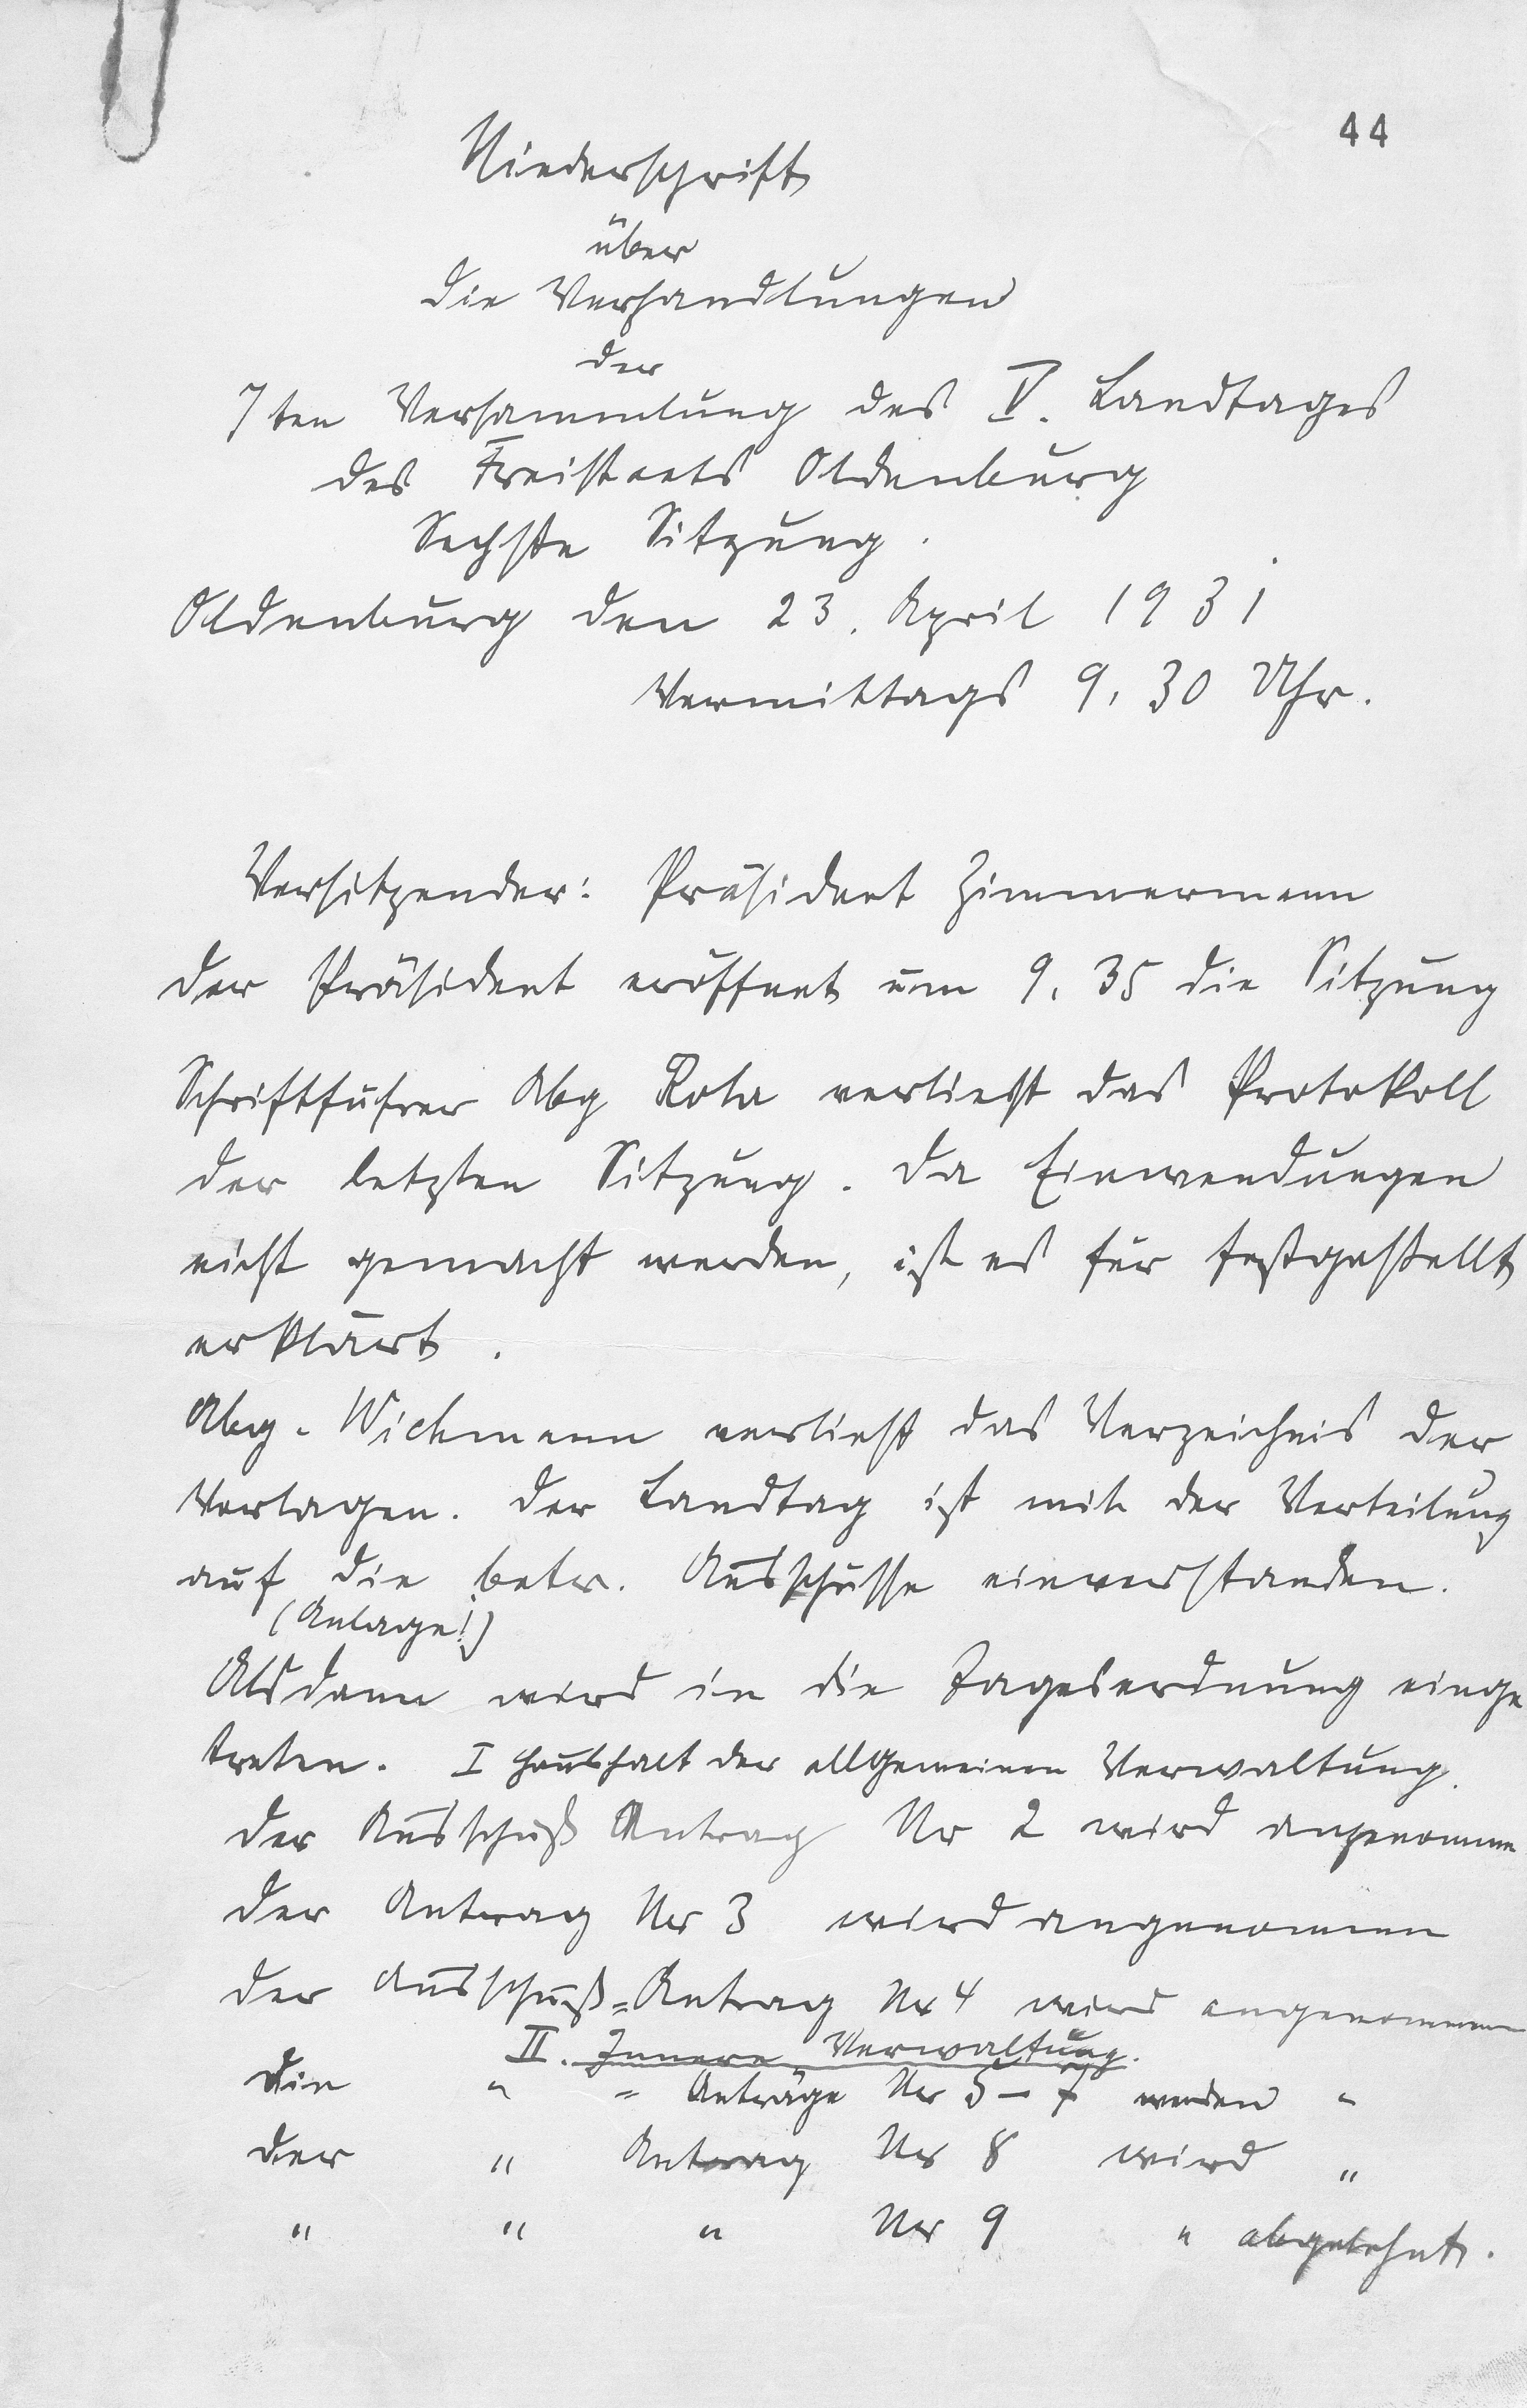 44
Niederschrift
über
die Verhandlungen
der
7ten Versammlung des V. Landtages
des Freistaats Oldenburg
Sechste Sitzung.
Oldenburg den 23. April 1931
Vormittags 9.30 Uhr.
Vorsitzender: Präsident Zimmermann
Der Präsident eröffnet um 9.35 die Sitzung
Schriftführer Abg Rota verliest das Protokoll
der letzten Sitzung. Da Einwendungen
nicht gemacht werden, ist es für festgestellt
erklärt.
Abg. Wichmann verliest das Verzeichnis der
Vorlagen. Der Landtag ist mit der Verteilung
auf die betr. Ausschüsse einverstanden.
(Anlage!)
Alsdann wird in die Tagesordnung einge
treten. I Haushalt der allgemeinen Verwaltung.
Der Ausschuß Antrag Nr 2 wird angenommen
Der Antrag Nr 3 wird angenommen
Der Ausschuß=Antrag Nr 4 wird angenommen
II. Innere Verwaltung.
Die " = Anträge Nr 5–7 werden "
Der " Antrag Nr 8 wird "
" " " Nr 9 " abgelehnt.